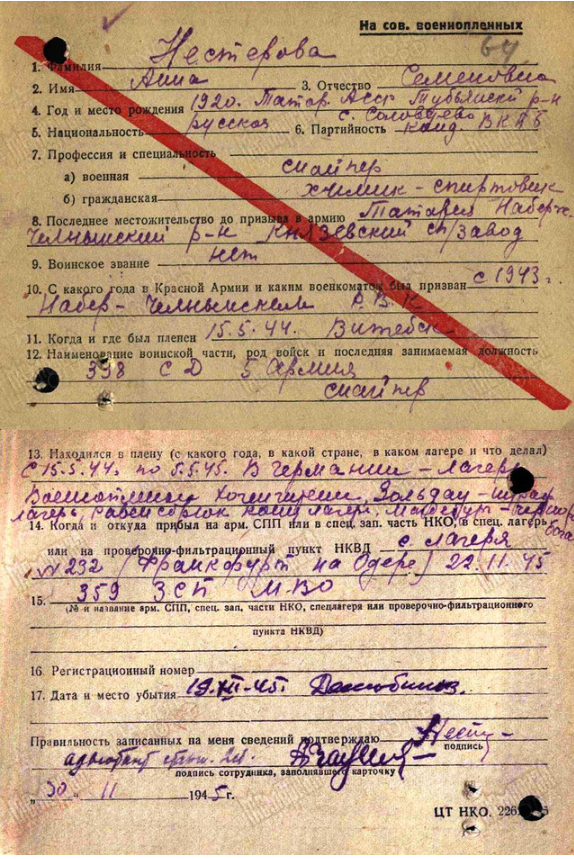 На сов. военнопленных
64
1. Фамилия Нестерова
2. Имя Анна 3. Отчество Семеновна
4. Год и место рождения 1920. Татар. Асср р-н
с.
5. Национальность русская 6. Партийность канд. ВКПБ
7. Профессия и специальность
а) военная снайпер
б) гражданская химик-спиртовик
8. Последнее местожительство до призыва в армию Татария Набереж.
Челнынский р-н Князевский сп/завод
9. Воинское звание нет
10. С какого года в Красной Армии и каким военкоматом был призван с 1943 г.
Набер-Челнынским Р.В.К
11. Когда и где был пленен 15.5.44. Витебск
12. Наименование воинской части, род войск и последняя занимаемая должность
338 СД 5 Армия
снайпер
13. Находился в плену (с какого года, в какой стране, в каком лагере и что делал)
С 15.5.44. по 5.5.45. В Германии – лагерь
Зольдау –
лагерь, лагерь, Магдебург –
14. Когда и откуда прибыл на арм. СПП или в спец. зап. часть НКО, в спец. лагерь
или на проверочно-фильтрационный пункт НКВД с лагеря
№ 232 (Франкфурт на Одере) 22.11.45
15. 359 ЗСП МВО
(№ и название арм. СПП, спец. зап. части НКО, спецлагеря или проверочно-фильтрационного
пункта НКВД)
16. Регистрационный номер
17. Дата и место убытия 19.XII-45.
Правильность записанных на меня сведений подтверждаю Нест
подпись
подпись сотрудника, заполнявшего карточку
„30" 11 1945 г.
ЦТ НКО.